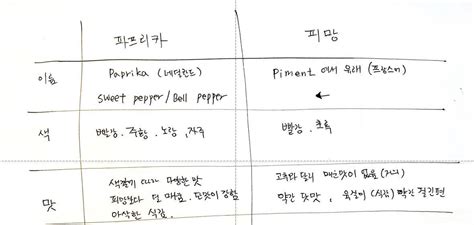 파프리카 피망
이름 Paprika (네덜란드) Piment 에서 유래 (프랑스어)
sweet pepper/Bell pepper ←
색 빨강. 주황. 노랑. 자주 빨강. 초록
색깔에 따라 다양한 맛 고추와 달리 매운맛이 없음 (거의)
맛 피망보다 덜 매움. 단맛이 강함 약간 뒷맛, 육질이 (식감) 약간 질긴편
아삭한 식감.